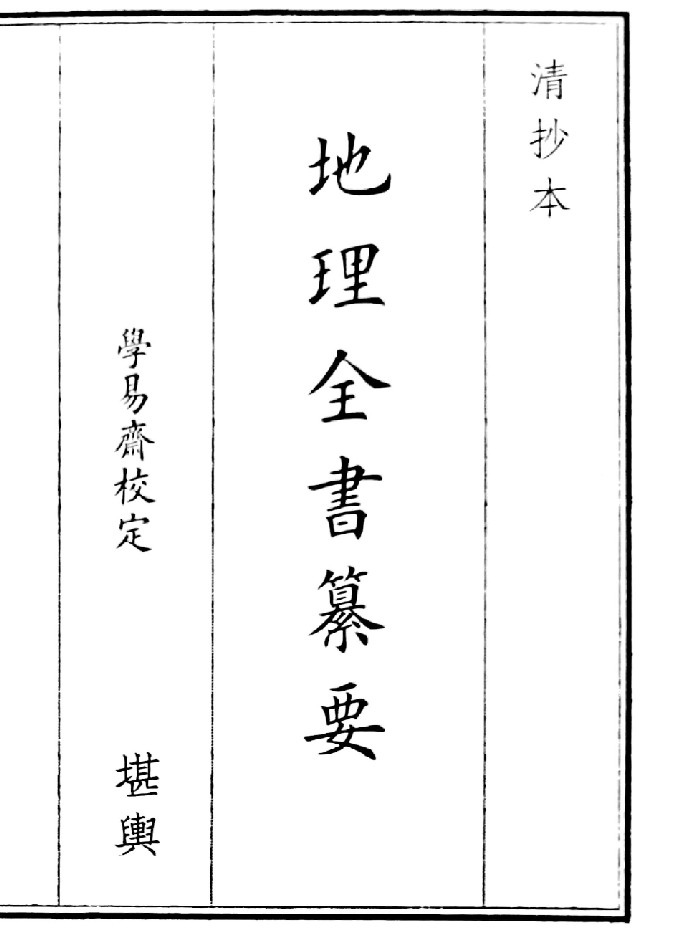 清抄本
地理全書纂要
學易齋校定
堪輿